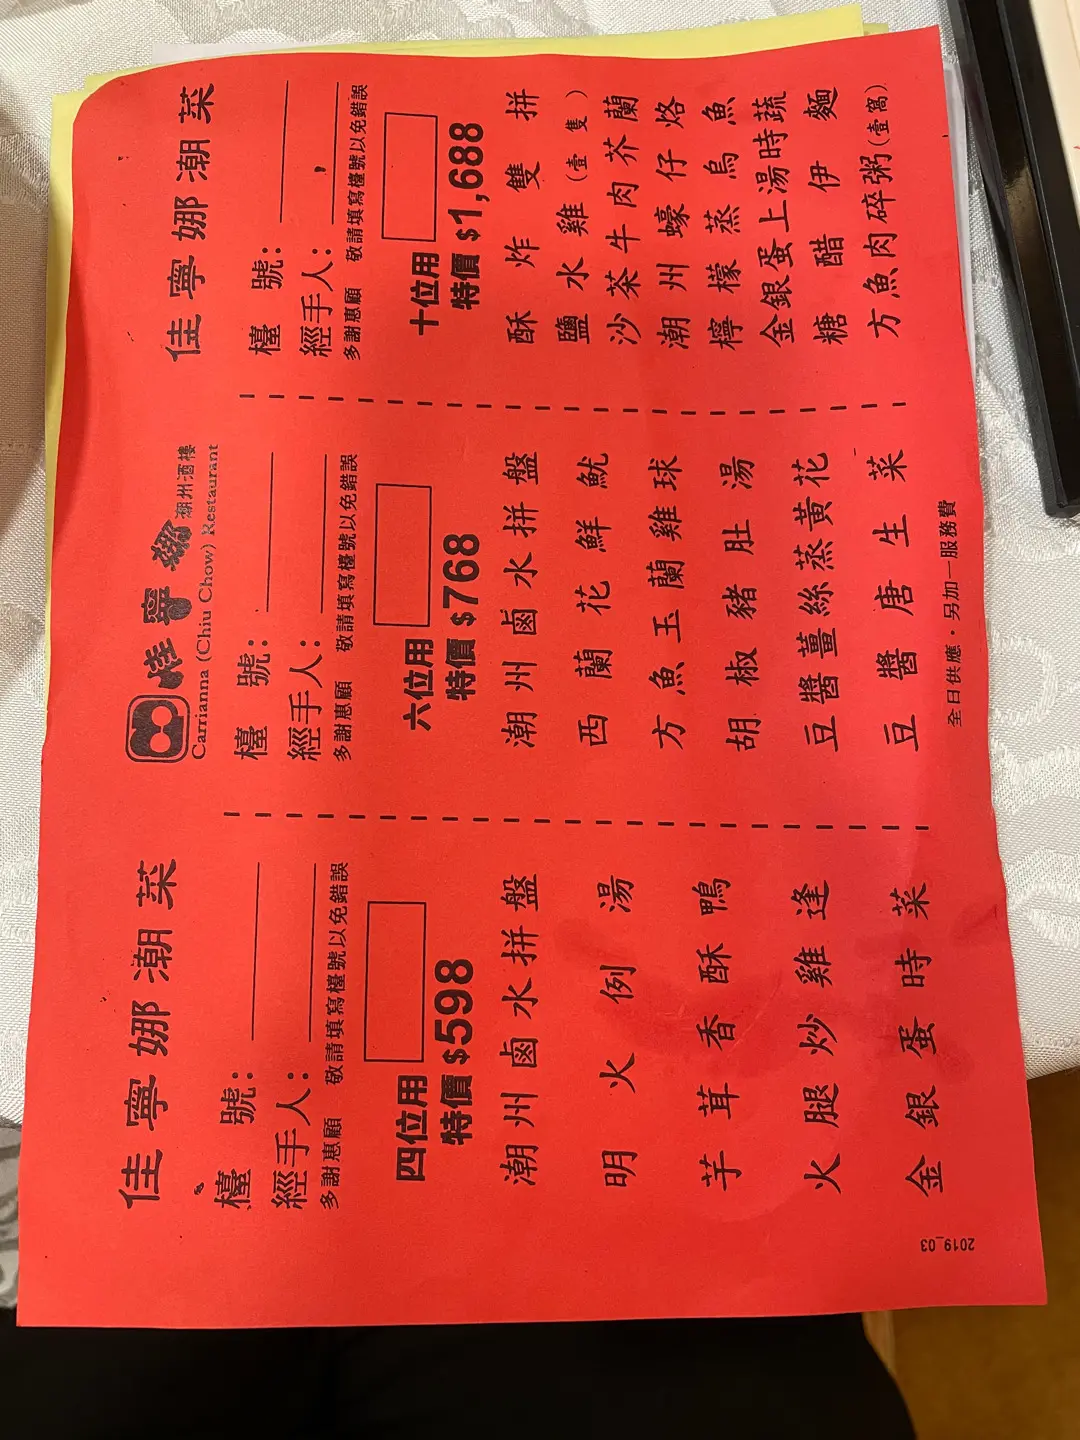 佳寧娜潮菜
檯號：
經手人：
多謝惠顧 敬請填寫檯號以免錯誤
四位用
特價 $598
潮州鹵水拼盤
明火例湯
芋茸香酥鴨
火腿炒雞逢
金銀蛋時菜
2019_03
佳寧娜 潮州酒樓
Carrianna (Chiu Chow) Restaurant
檯號：
經手人：
多謝惠顧 敬請填寫檯號以免錯誤
六位用
特價 $768
潮州鹵水拼盤
西蘭花鮮魷
方魚玉蘭雞球
胡椒豬肚湯
豆醬薑絲蒸黃花
豆醬唐生菜
全日供應・另加一服務費
佳寧娜潮菜
檯號：
經手人：
多謝惠顧 敬請填寫檯號以免錯誤
十位用
特價 $1,688
酥炸雙拼
鹽水雞(壹隻)
沙茶牛肉芥蘭
潮州蠔仔烙
檸檬蒸烏魚
金銀蛋上湯時蔬
糖醋伊麵
方魚肉碎粥(壹窩)